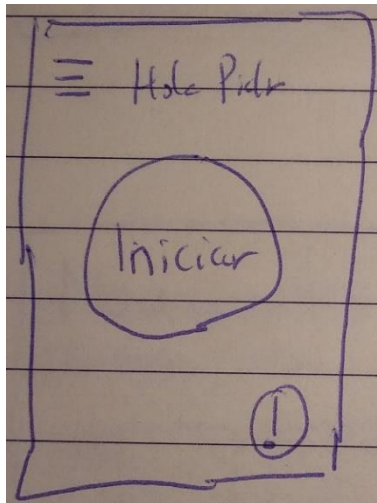 Hola Pidr
Iniciar
!